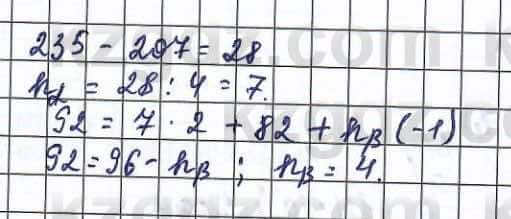 235 - 207 = 28
nα = 28 : 4 = 7.
92 = 7 · 2 + 82 + nβ (-1)
92 = 96 - nβ ; nβ = 4.